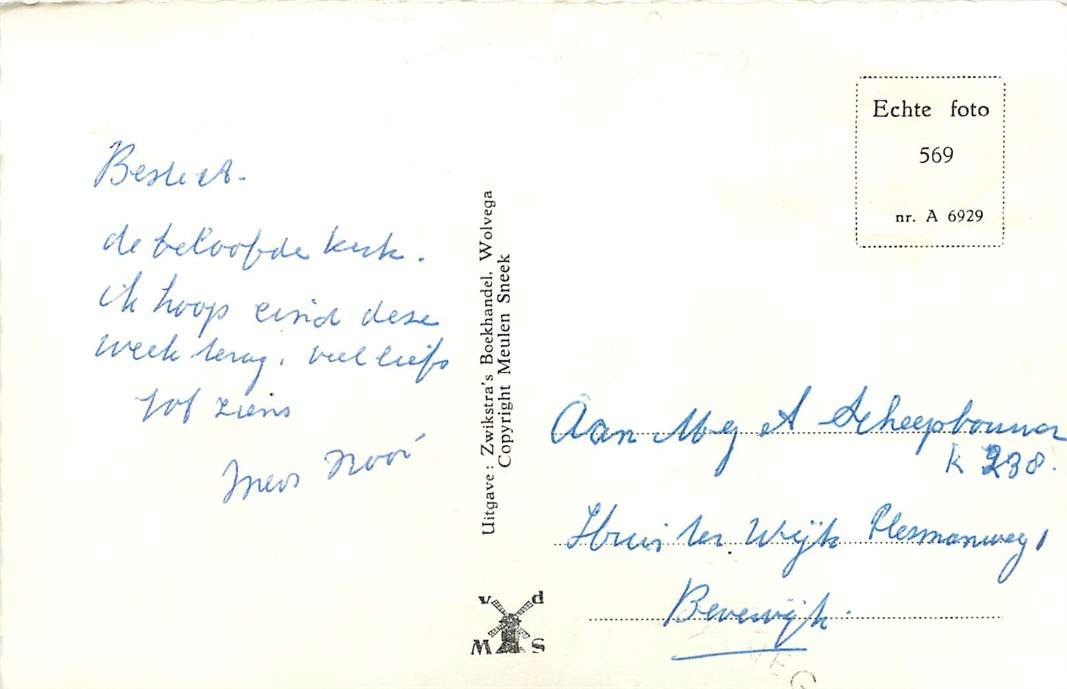 Beste A.
de beloofde kerk.
ik hoop eind deze
week terug. veel liefs
tot ziens
Uitgave: Zwikstra's Boekhandel, Wolvega
Copyright Meulen Sneek
v d
M S
Echte foto
569
nr. A 6929
Aan Mej A Scheepbouwer
K 238.
Huis ter Wijk Plesmanweg 1
Beverwijk.